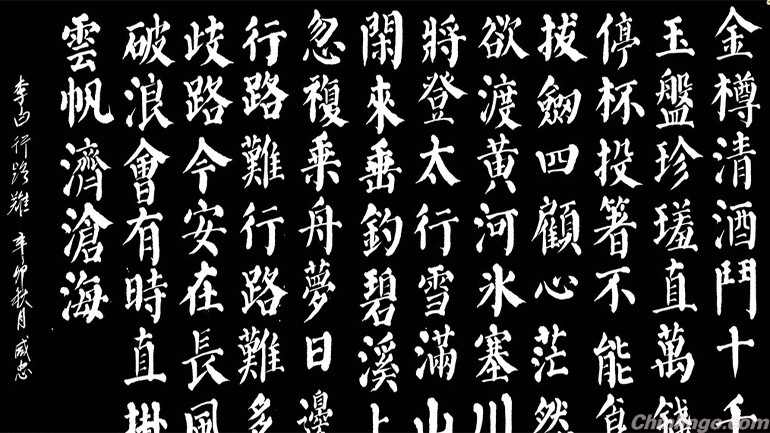 金樽清酒鬥十千
玉盤珍瑳直萬錢
停杯投箸不能食
拔劒四顧心茫然
欲渡黃河氷塞川
將登太行雪滿山
閑來垂釣碧溪上
忽複乘舟夢日邊
行路難行路難多
歧路今安在長風
破浪會有時直掛
雲帆濟滄海
李白行路難 辛卯秋月 威忠
Chinlingo.com